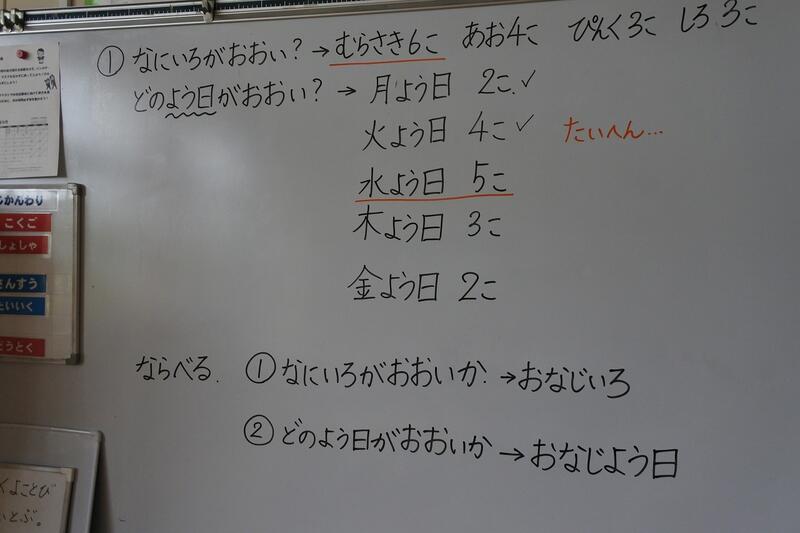 ① なにいろがおおい? → むらさき6こ あお4こ ぴんく3こ しろ3こ
どのよう日がおおい? → 月よう日 2こ.✓
火よう日 4こ✓ たいへん…
水よう日 5こ
木よう日 3こ
金よう日 2こ
ならべる. ①なにいろがおおいか. →おなじいろ
②どのよう日がおおいか →おなじよう日
じかんわり
こくご
しょしゃ
さんすう
たいいく
どうとく
くよことび
いとぶ。